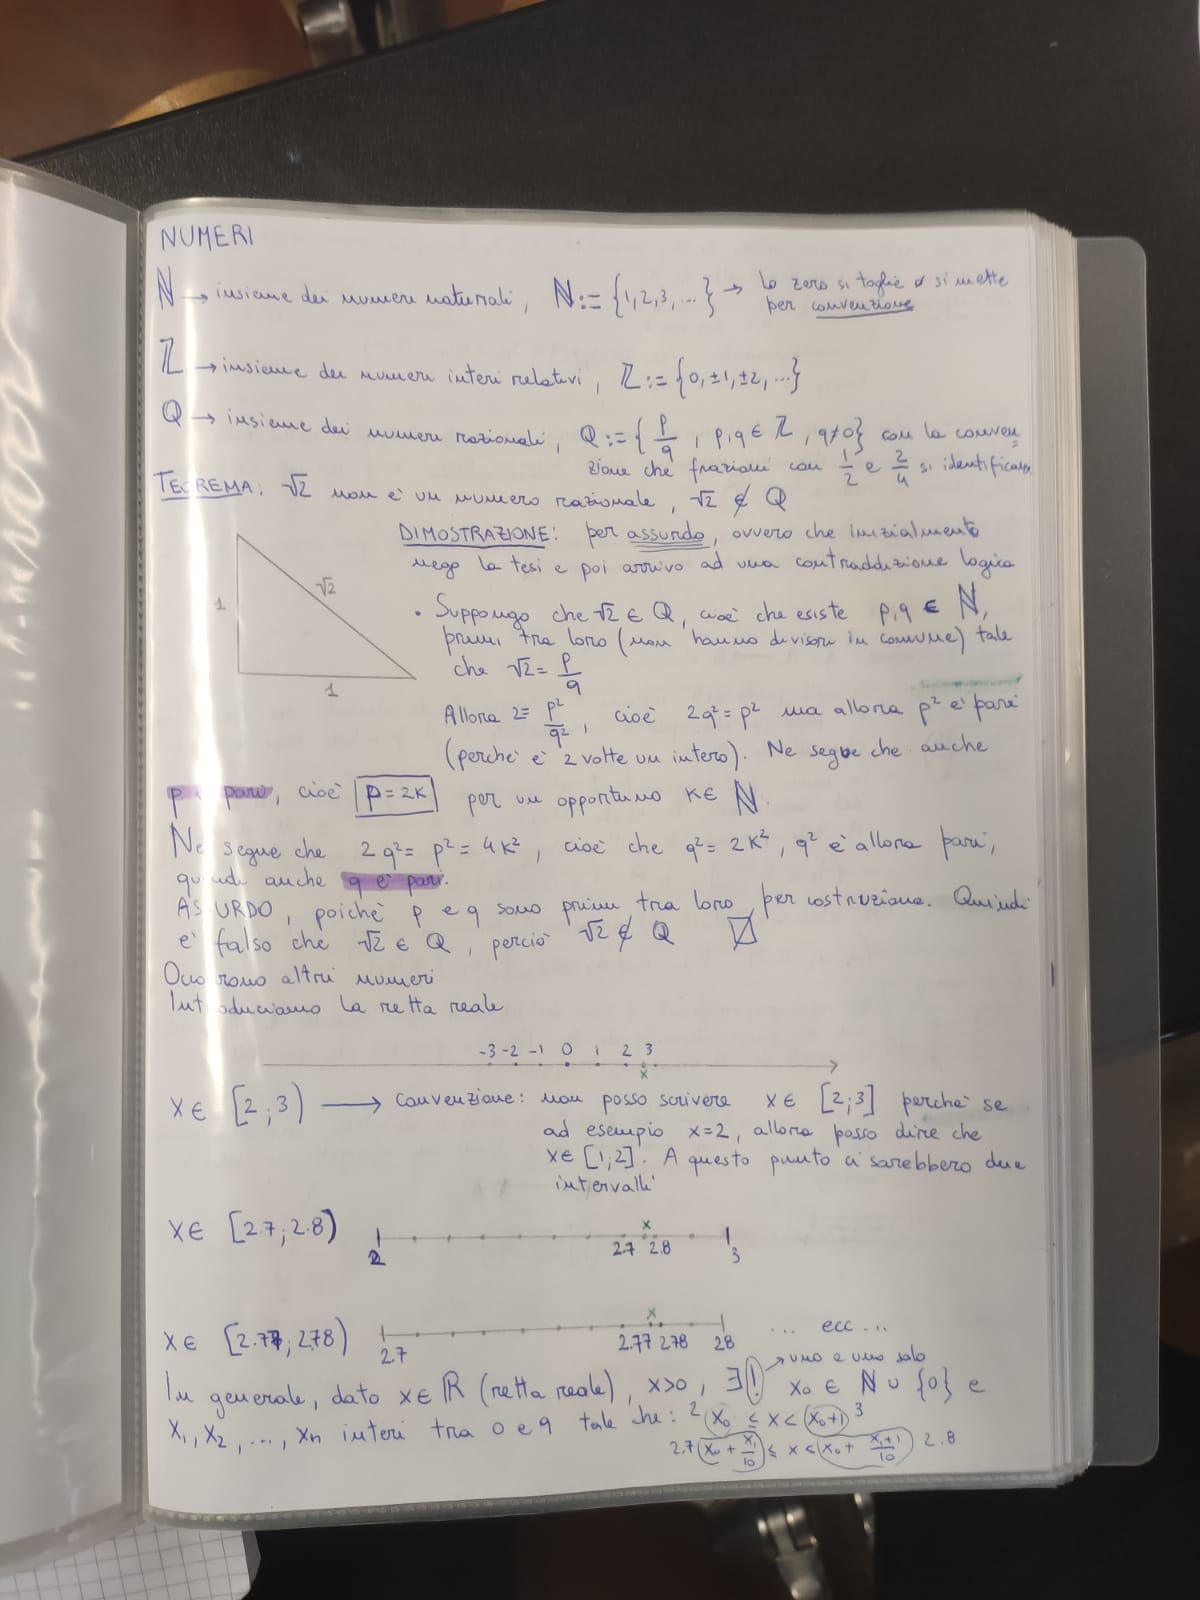 NUMERI
ℕ → insieme dei numeri naturali, ℕ := {1,2,3,...} → lo zero si toglie o si mette
per convenzione
ℤ → insieme dei numeri interi relativi, ℤ := {0,±1,±2,...}
Q → insieme dei numeri razionali, Q := { p/q , p,q ∈ ℤ, q≠0} con la conven
zione che frazioni con 1/2 e 2/4 si identificano
TEOREMA: √2 non è un numero razionale, √2 ∉ Q
DIMOSTRAZIONE: per assurdo, ovvero che inizialmente
nego la tesi e poi arrivo ad una contraddizione logica
1
√2
1
• Suppongo che √2 ∈ Q, cioè che esiste p,q ∈ ℕ,
primi tra loro (non hanno divisori in comune) tale
che √2 = p/q
Allora 2 = p²/q², cioè 2q² = p² ma allora p² è pari
(perchè è 2 volte un intero). Ne segue che anche
p è pari, cioè p = 2K per un opportuno K ∈ ℕ.
Ne segue che 2q² = p² = 4K², cioè che q² = 2K², q² è allora pari,
quindi anche q è pari.
ASSURDO, poichè p e q sono primi tra loro per costruzione. Quindi
è falso che √2 ∈ Q, perciò √2 ∉ Q
Occorrono altri numeri
Introduciamo la retta reale
-3 -2 -1 0 1 2 3
x
X ∈ [2;3) → convenzione: non posso scrivere X ∈ [2;3] perchè se
ad esempio x=2, allora posso dire che
X ∈ [1;2]. A questo punto ci sarebbero due
intervalli
X ∈ [2.7; 2.8)
x
2 2.7 2.8 3
X ∈ [2.77; 2.78)
x
2.7 2.77 2.78 2.8 ... ecc ...
→ uno e uno solo
In generale, dato x ∈ ℝ (retta reale), x>0, ∃! X₀ ∈ ℕ ∪ {0} e
X₁, X₂, ..., Xn interi tra 0 e 9 tale che: 2 X₀ ≤ X < X₀+1 3
2.7 X₀ + X₁/10 ≤ X < X₀ + X₁+1/10 2.8